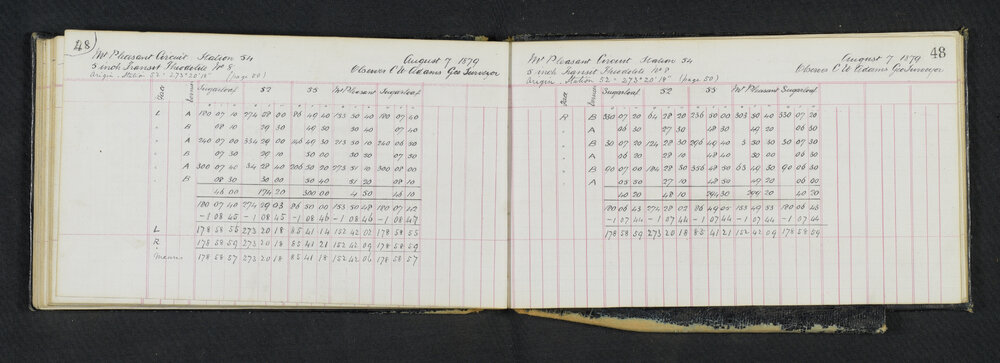 48
Mt Pleasant Circuit Station 54
August 7 1879
5 inch Transit Theodolite No 8
Observer C W Adams Geo Surveyor
Origin - Station 52 - 273° 20' 18" (page 50)
Face Vernier Sugarloaf 52 55 Mt Pleasant Sugarloaf
L A 180 07 10 274 28 00 86 49 40 153 50 40 180 07 40
B 08 10 29 30 49 50 30 40 07 40
A 240 07 00 334 29 00 146 49 30 213 50 10 240 06 50
B 07 30 29 10 50 00 50 20 07 30
A 300 07 40 34 28 40 206 50 20 273 51 10 300 08 00
B 08 30 30 00 50 40 51 20 08 10
46 00 174 20 300 00 4 50 46 10
180 07 40 274 29 03 86 50 00 153 50 48 180 07 42
-1 08 45 -1 08 45 -1 08 46 -1 08 46 -1 08 47
L 178 58 55 273 20 18 85 41 14 152 42 02 178 58 55
R 178 58 59 273 20 18 85 41 21 152 42 09 178 58 59
Means 178 58 57 273 20 18 85 41 18 152 42 06 178 58 57
48
Mt Pleasant Circuit Station 54
August 7 1879
5 inch Transit Theodolite No 8
Observer C W Adams Geo Surveyor
Origin - Station 52 - 273° 20' 18" (page 50)
Face Vernier Sugarloaf 52 55 Mt Pleasant Sugarloaf
R B 330 07 20 64 28 20 236 50 00 303 50 40 330 07 20
A 06 30 27 30 48 30 49 20 06 30
B 30 07 20 124 28 30 296 49 40 3 50 30 30 07 30
A 06 20 28 10 48 40 50 00 06 30
B 90 07 00 184 28 30 356 48 50 63 49 50 90 06 30
A 05 50 27 10 48 50 49 20 06 00
40 20 48 10 294 30 299 20 40 20
180 06 43 274 28 02 86 49 05 153 49 53 180 06 43
-1 07 44 -1 07 44 -1 07 44 -1 07 44 -1 07 44
178 58 59 273 20 18 85 41 21 152 42 09 178 58 59